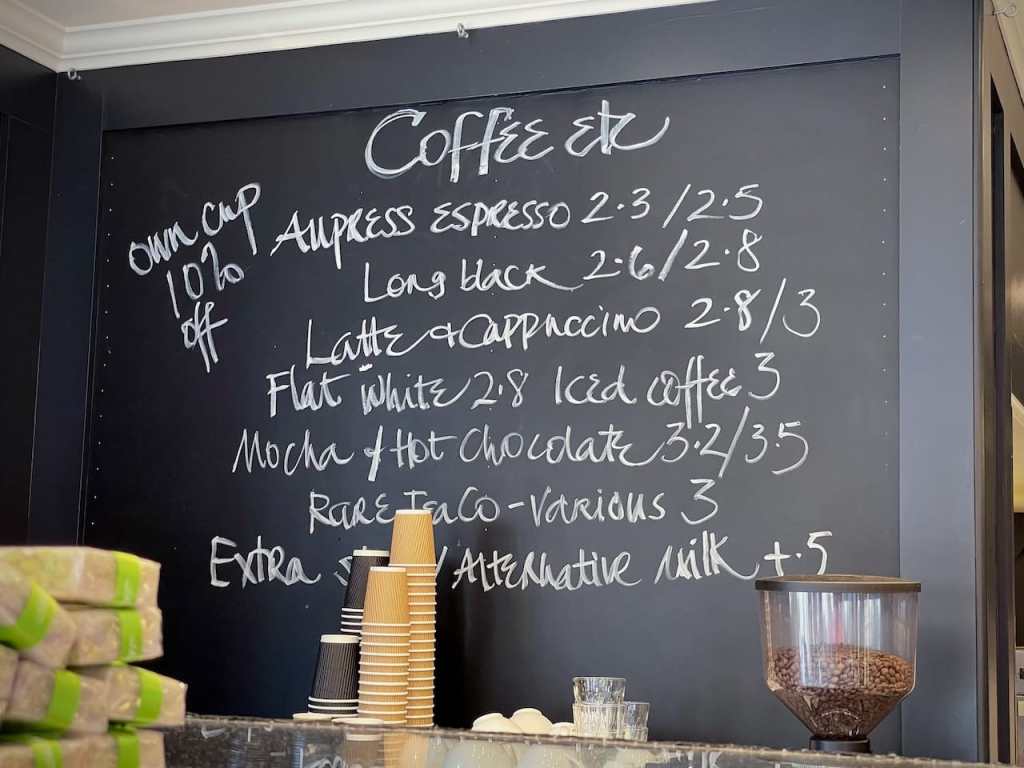 Coffee etc
own cup
10%
off
Allpress espresso 2.3/2.5
Long black 2.6/2.8
Latte & Cappuccino 2.8/3
Flat white 2.8 Iced coffee 3
Mocha / Hot Chocolate 3.2/3.5
Rare Tea Co - Various 3
Extra / Alternative milk +.5